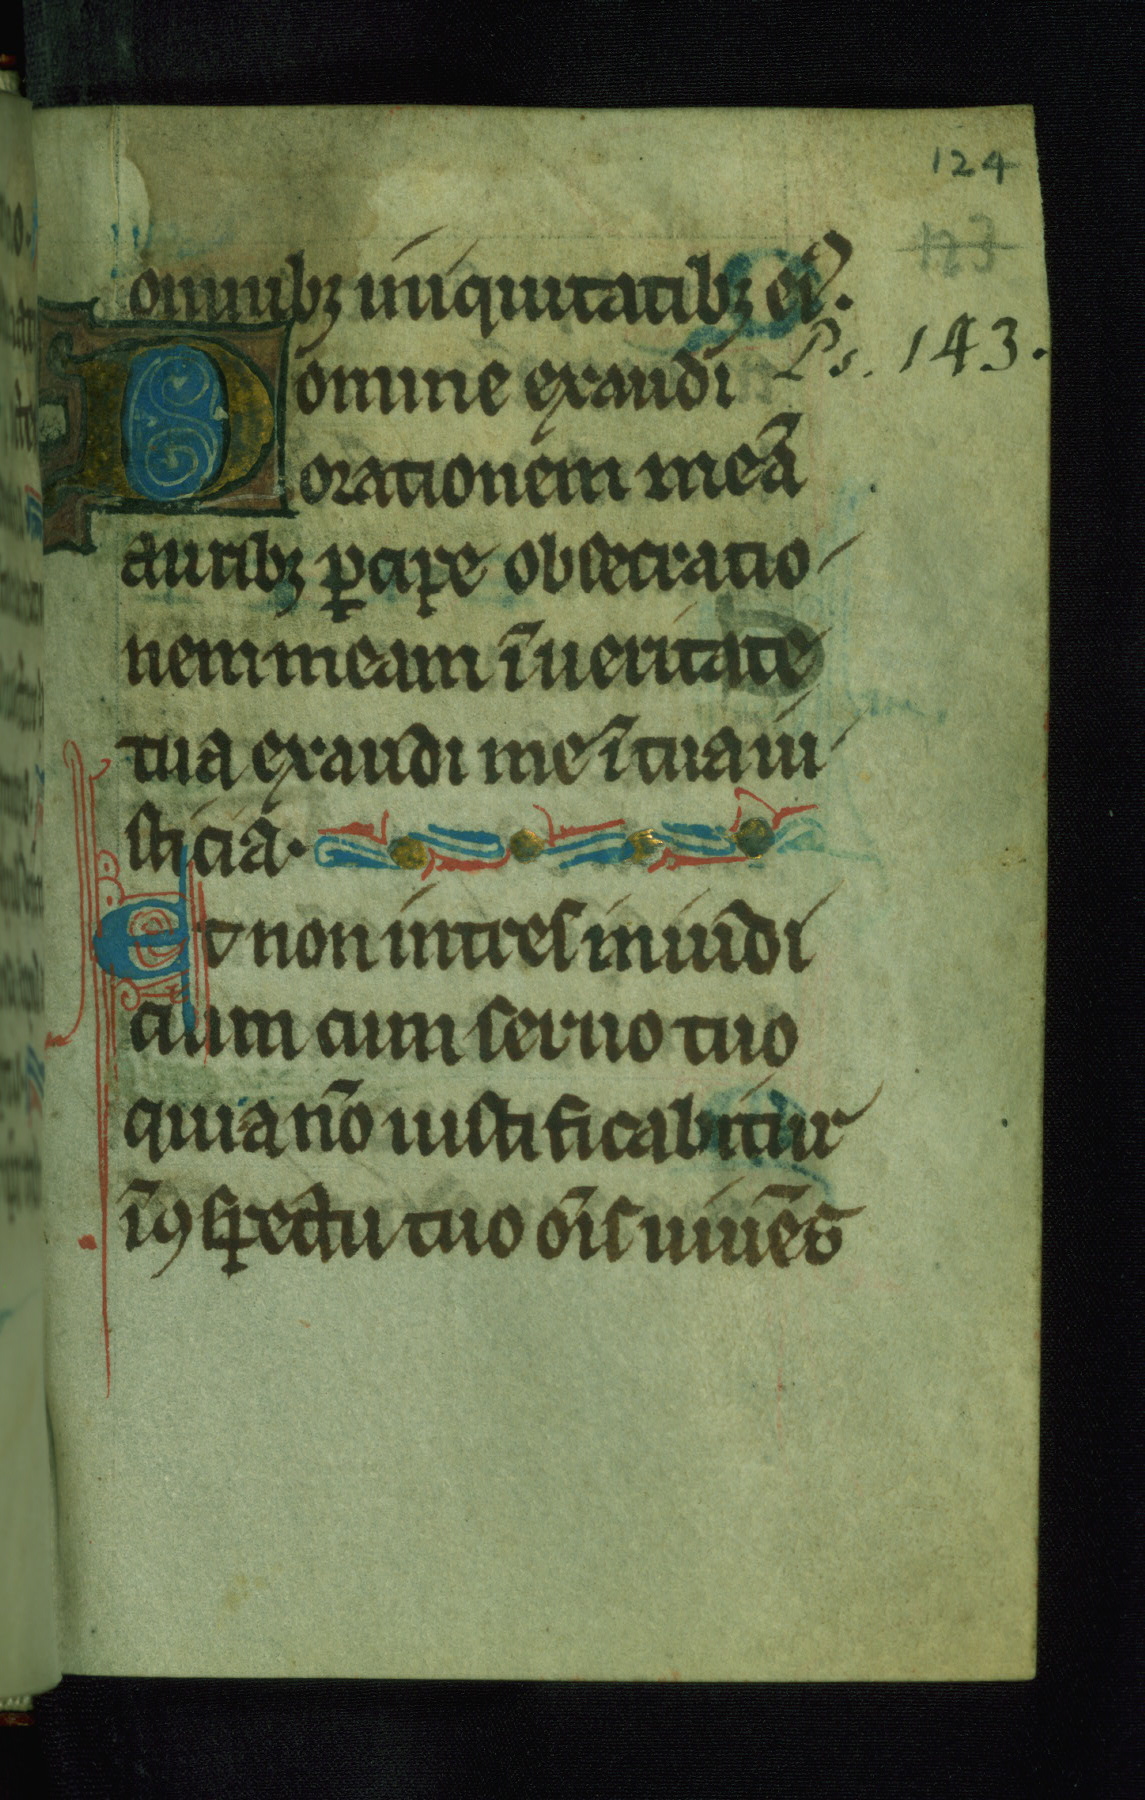 124
123
omnibꝫ iniquitatibꝫ eiꝰ.
Ps. 143.
Domine exaudi
orationem meā
auribꝫ ꝑcipe obsecratio
nem meam ī ueritate
tua exaudi me ī tua iu
sticiā.
Et non intres in iudi
cium cum seruo tuo
quia nō iustificabitur
ī ꝯspectu tuo om̄is uiuēs